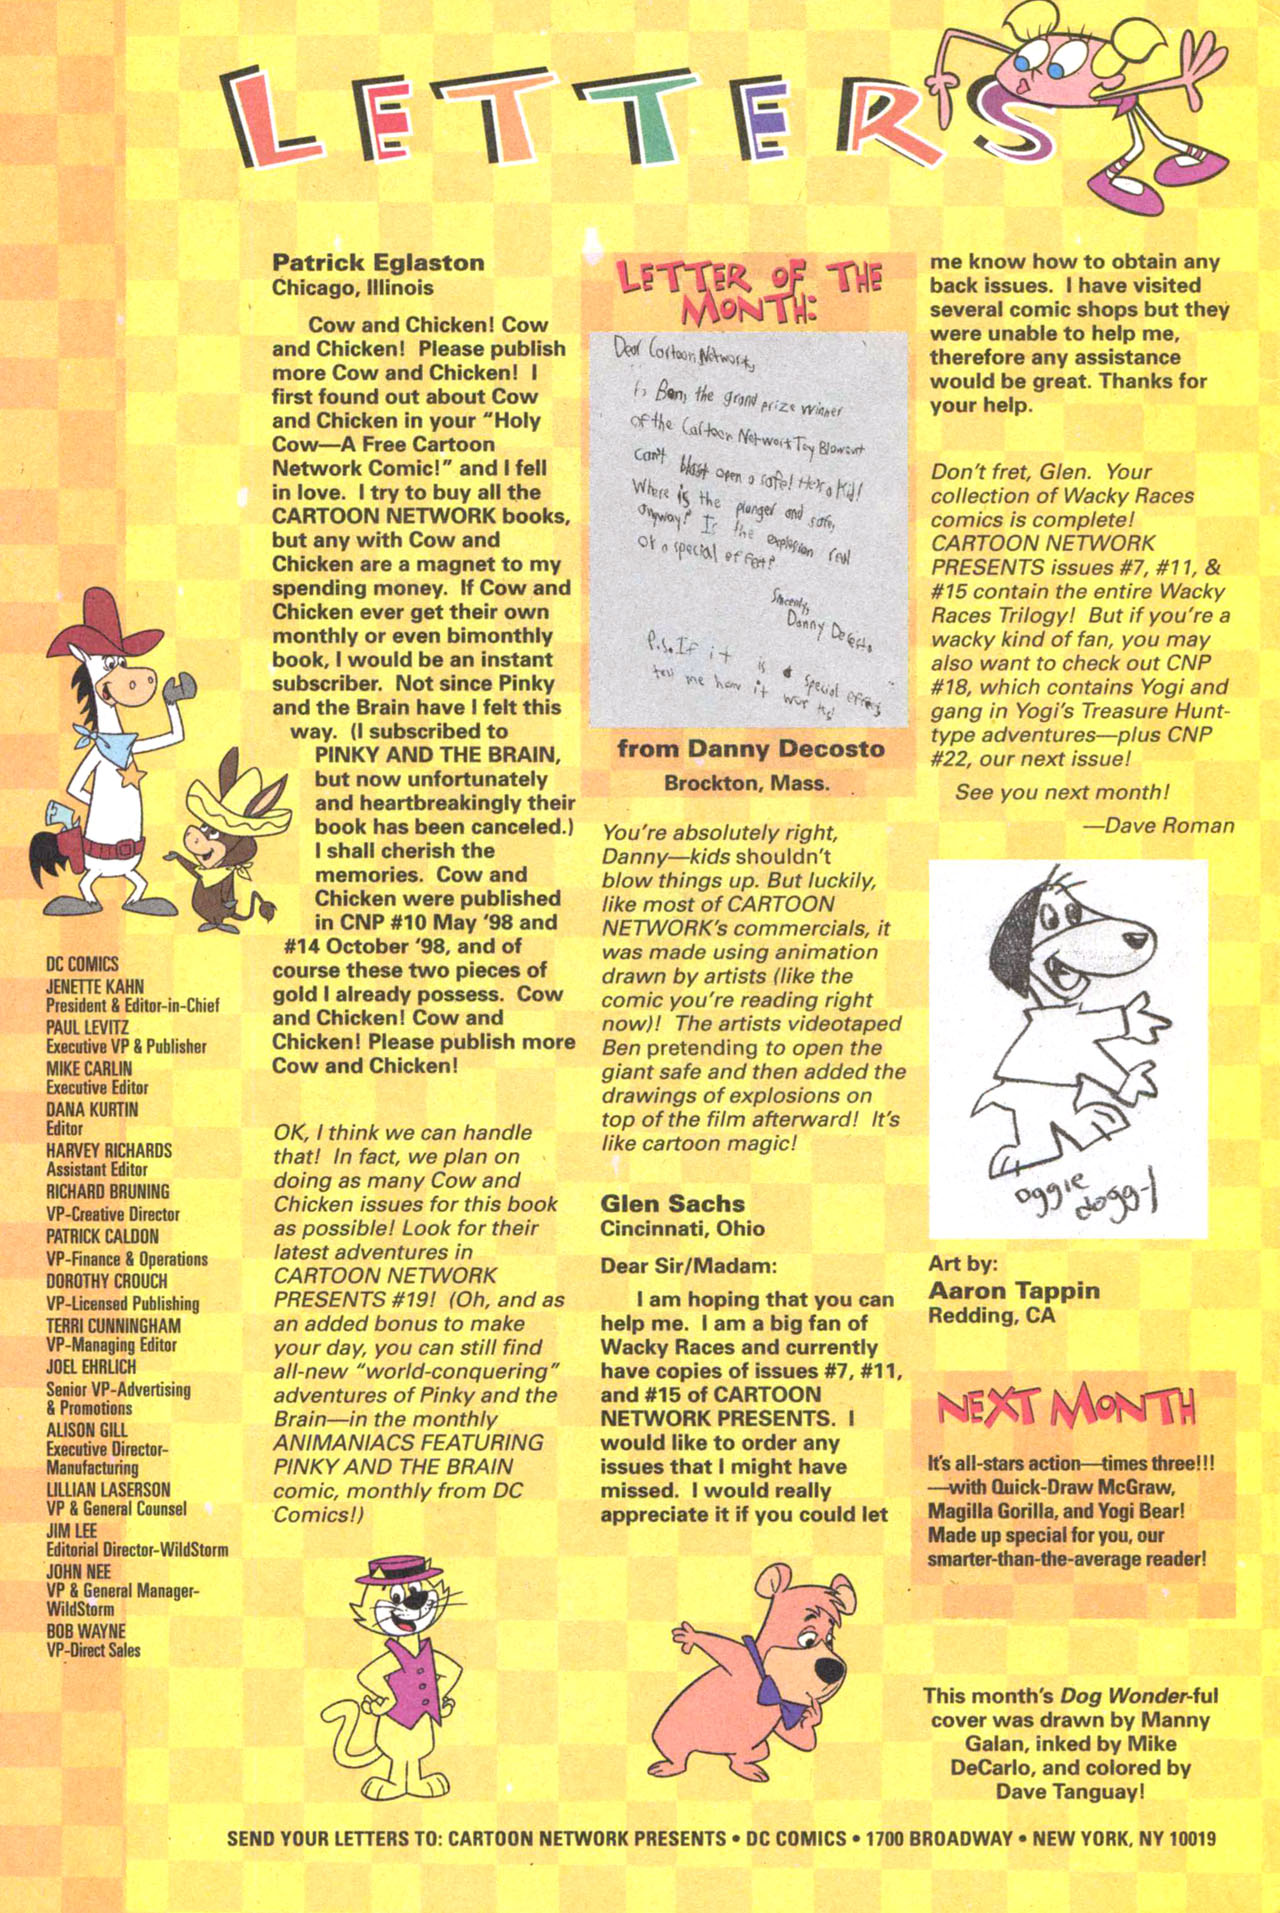 LETTERS
Patrick Eglaston
Chicago, Illinois
Cow and Chicken! Cow
and Chicken! Please publish
more Cow and Chicken! I
first found out about Cow
and Chicken in your "Holy
Cow—A Free Cartoon
Network Comic!" and I fell
in love. I try to buy all the
CARTOON NETWORK books,
but any with Cow and
Chicken are a magnet to my
spending money. If Cow and
Chicken ever get their own
monthly or even bimonthly
book, I would be an instant
subscriber. Not since Pinky
and the Brain have I felt this
way. (I subscribed to
PINKY AND THE BRAIN,
but now unfortunately
and heartbreakingly their
book has been canceled.)
I shall cherish the
memories. Cow and
Chicken were published
in CNP #10 May '98 and
#14 October '98, and of
course these two pieces of
gold I already possess. Cow
and Chicken! Cow and
Chicken! Please publish more
Cow and Chicken!
OK, I think we can handle
that! In fact, we plan on
doing as many Cow and
Chicken issues for this book
as possible! Look for their
latest adventures in
CARTOON NETWORK
PRESENTS #19! (Oh, and as
an added bonus to make
your day, you can still find
all-new "world-conquering"
adventures of Pinky and the
Brain—in the monthly
ANIMANIACS FEATURING
PINKY AND THE BRAIN
comic, monthly from DC
Comics!)
LETTER OF THE
MONTH:
Dear Cartoon Network,
Is Ben, the grand prize winner
of the Cartoon Network Toy Blowout
can't blast open a safe! He's a Kid!
Where is the plunger and safe,
anyway? Is the explosion real
or a special effect?
Sincerely,
Danny Decosto
P.S. If it is a special effect,
tell me how it works!
from Danny Decosto
Brockton, Mass.
You're absolutely right,
Danny—kids shouldn't
blow things up. But luckily,
like most of CARTOON
NETWORK's commercials, it
was made using animation
drawn by artists (like the
comic you're reading right
now)! The artists videotaped
Ben pretending to open the
giant safe and then added the
drawings of explosions on
top of the film afterward! It's
like cartoon magic!
Glen Sachs
Cincinnati, Ohio
Dear Sir/Madam:
I am hoping that you can
help me. I am a big fan of
Wacky Races and currently
have copies of issues #7, #11,
and #15 of CARTOON
NETWORK PRESENTS. I
would like to order any
issues that I might have
missed. I would really
appreciate it if you could let
me know how to obtain any
back issues. I have visited
several comic shops but they
were unable to help me,
therefore any assistance
would be great. Thanks for
your help.
Don't fret, Glen. Your
collection of Wacky Races
comics is complete!
CARTOON NETWORK
PRESENTS issues #7, #11, &
#15 contain the entire Wacky
Races Trilogy! But if you're a
wacky kind of fan, you may
also want to check out CNP
#18, which contains Yogi and
gang in Yogi's Treasure Hunt-
type adventures—plus CNP
#22, our next issue!
See you next month!
—Dave Roman
oggie
dogg-y
Art by:
Aaron Tappin
Redding, CA
NEXT MONTH
It's all-stars action—times three!!!
—with Quick-Draw McGraw,
Magilla Gorilla, and Yogi Bear!
Made up special for you, our
smarter-than-the-average reader!
This month's Dog Wonder-ful
cover was drawn by Manny
Galan, inked by Mike
DeCarlo, and colored by
Dave Tanguay!
DC COMICS
JENETTE KAHN
President & Editor-in-Chief
PAUL LEVITZ
Executive VP & Publisher
MIKE CARLIN
Executive Editor
DANA KURTIN
Editor
HARVEY RICHARDS
Assistant Editor
RICHARD BRUNING
VP-Creative Director
PATRICK CALDON
VP-Finance & Operations
DOROTHY CROUCH
VP-Licensed Publishing
TERRI CUNNINGHAM
VP-Managing Editor
JOEL EHRLICH
Senior VP-Advertising
& Promotions
ALISON GILL
Executive Director-
Manufacturing
LILLIAN LASERSON
VP & General Counsel
JIM LEE
Editorial Director-WildStorm
JOHN NEE
VP & General Manager-
WildStorm
BOB WAYNE
VP-Direct Sales
SEND YOUR LETTERS TO: CARTOON NETWORK PRESENTS • DC COMICS • 1700 BROADWAY • NEW YORK, NY 10019